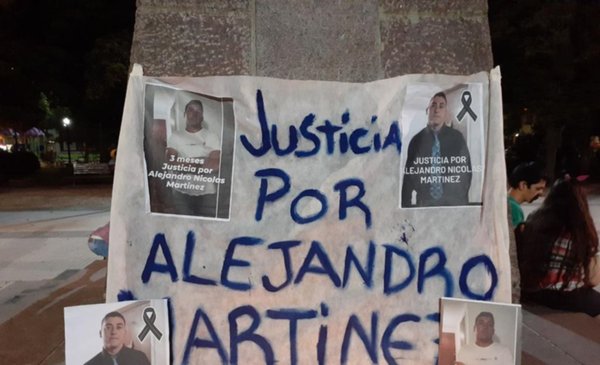 3 meses
Justicia por
Alejandro Nicolas
Martínez
JUSTICIA POR
ALEJANDRO NICOLAS
MARTINEZ
JUSTICIA
POR
ALEJANDRO
MARTINEZ